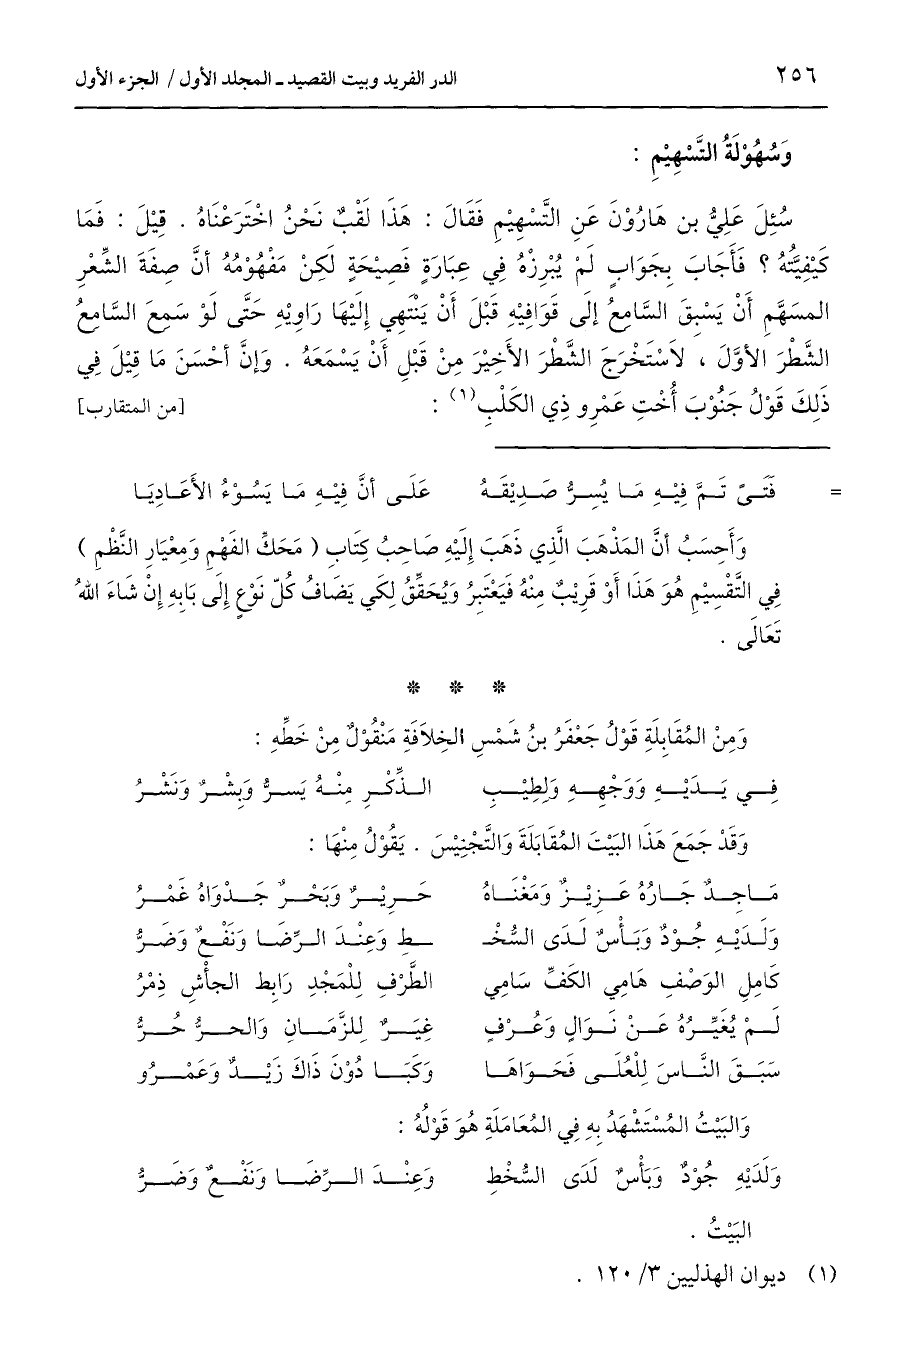 ٢٥٦ الدر الفريد وبيت القصيد ـ المجلد الأول / الجزء الأول
وَسُهُوْلَةُ التَّسْهِيْمِ :
سُئِلَ عَلِيُّ بن هَارُوْنَ عَنِ التَّسْهِيْمِ فَقَالَ : هَذَا لَقْبٌ نَحْنُ اخْتَرَعْنَاهُ . قِيْلَ : فَمَا
كَيْفِيَّتُهُ ؟ فَأَجَابَ بِجَوَابٍ لَمْ يُبْرِزْهُ فِي عِبَارَةٍ فَصِيْحَةٍ لَكِنْ مَفْهُوْمُهُ أنَّ صِفَةَ الشِّعْرِ
المسَهَّمِ أنْ يَسْبِقَ السَّامِعُ إلَى قَوَافِيْهِ قَبْلَ أنْ يَنْتَهِي إلَيْهَا رَاوِيْهِ حَتَّى لَوْ سَمِعَ السَّامِعُ
الشَّطْرَ الأوَّلَ ، لاَسْتَخْرَجَ الشَّطْرَ الأخِيْرَ مِنْ قَبْلِ أنْ يَسْمَعَهُ . وَإنَّ أحْسَنَ مَا قِيْلَ فِي
ذَلِكَ قَوْلُ جَنُوْبَ أُخْتِ عَمْرِو ذِي الكَلْبِ(١) : [من المتقارب]
= فَتَىً تَمَّ فِيْهِ مَا يُسِرُّ صَدِيْقَهُ عَلَى أنَّ فِيْهِ مَا يَسُوْءُ الأعَادِيَا
وَأَحِسَبُ أنَّ المَذْهَبَ الَّذِي ذَهَبَ إلَيْهِ صَاحِبُ كِتَابِ ( مَحَكِّ الفَهْمِ وَمِعْيَارِ النَّظْمِ )
فِي التَّقْسِيْمِ هُوَ هَذَا أوْ قَرِيْبٌ مِنْهُ فَيُعْتَبرُ وَيُحَقَّقُ لِكَي يَضَافُ كُلّ نَوْعٍ إلَى بَابِهِ إنْ شَاءَ اللهُ
تَعَالَى .
* * *
وَمِنْ المُقَابِلَةِ قَوْلُ جَعْفَرُ بنُ شَمْسِ الخِلاَفَةِ مَنْقُوْلٌ مِنْ خَطِّهِ :
فِي يَدَيْهِ وَوَجْهِهِ وَلِطِيْبِ الذِّكْرِ مِنْهُ يَسرٌّ وَبِشْرٌ وَنَشْرُ
وَقَدْ جَمَعَ هَذَا البَيْتَ المُقَابَلَةَ وَالتَّجْنِيْسَ . يَقُوْلُ مِنْهَا :
مَاجِدٌ جَارُهُ عَزِيْزٌ وَمَغْنَاهُ حَرِيْرٌ وَبَحْرٌ جَدْوَاهُ غَمْرُ
وَلَدَيْهِ جُوْدٌ وَبَأْسٌ لَدَى السُّخْـ ـطِ وَعِنْدَ الرِّضَا وَنَفْعٌ وَضَرُّ
كَامِلِ الوَصْفِ هَامِي الكَفِّ سَامِي الطَّرْفِ لِلْمَجْدِ رَابِط الجأْشِ ذِمْرُ
لَمْ يُغَيِّرْهُ عَنْ نَوَالٍ وَعُرْفٍ غِيَرٌ لِلزَّمَانِ وَالحرُّ حُرُّ
سَبَقَ النَّاسَ لِلْعُلَى فَحَوَاهَا وَكَبَا دُوْنَ ذَاكَ زَيْدٌ وَعَمْرُو
وَالبَيْتُ المُسْتَشْهَدُ بِهِ فِي المُعَامَلَةِ هُوَ قَوْلُهُ :
وَلَدَيْهِ جُوْدٌ وَبَأْسٌ لَدَى السُّخْطِ وَعِنْدَ الرِّضَا وَنَفْعٌ وَضَرُّ
البَيْتُ .
(١) ديوان الهذليين ٣/ ١٢٠ .